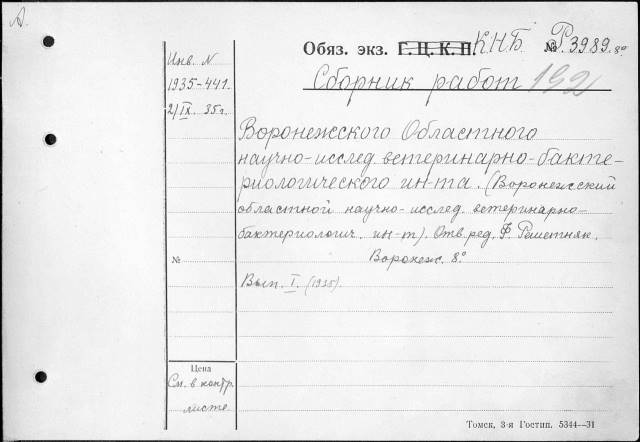 А.
Обяз. экз. Г. Ц. К. П. К.Н.Б. № Р.3989.8º
Сборник работ 192
Инв. N
1935-441.
2/IX. 35г.
Воронежского Областного
научно-исслед. ветеринарно-бакте-
риологического ин-та. (Воронежский
областной научно-исслед. ветеринарно-
бактериологич. ин-т). Отв. ред. Ф. Решетняк.
Воронеж. 8º
№
Вып. I. (1935).
Цена
См. в контр.
листе
Томск, 3-я Гостип. 5344—31